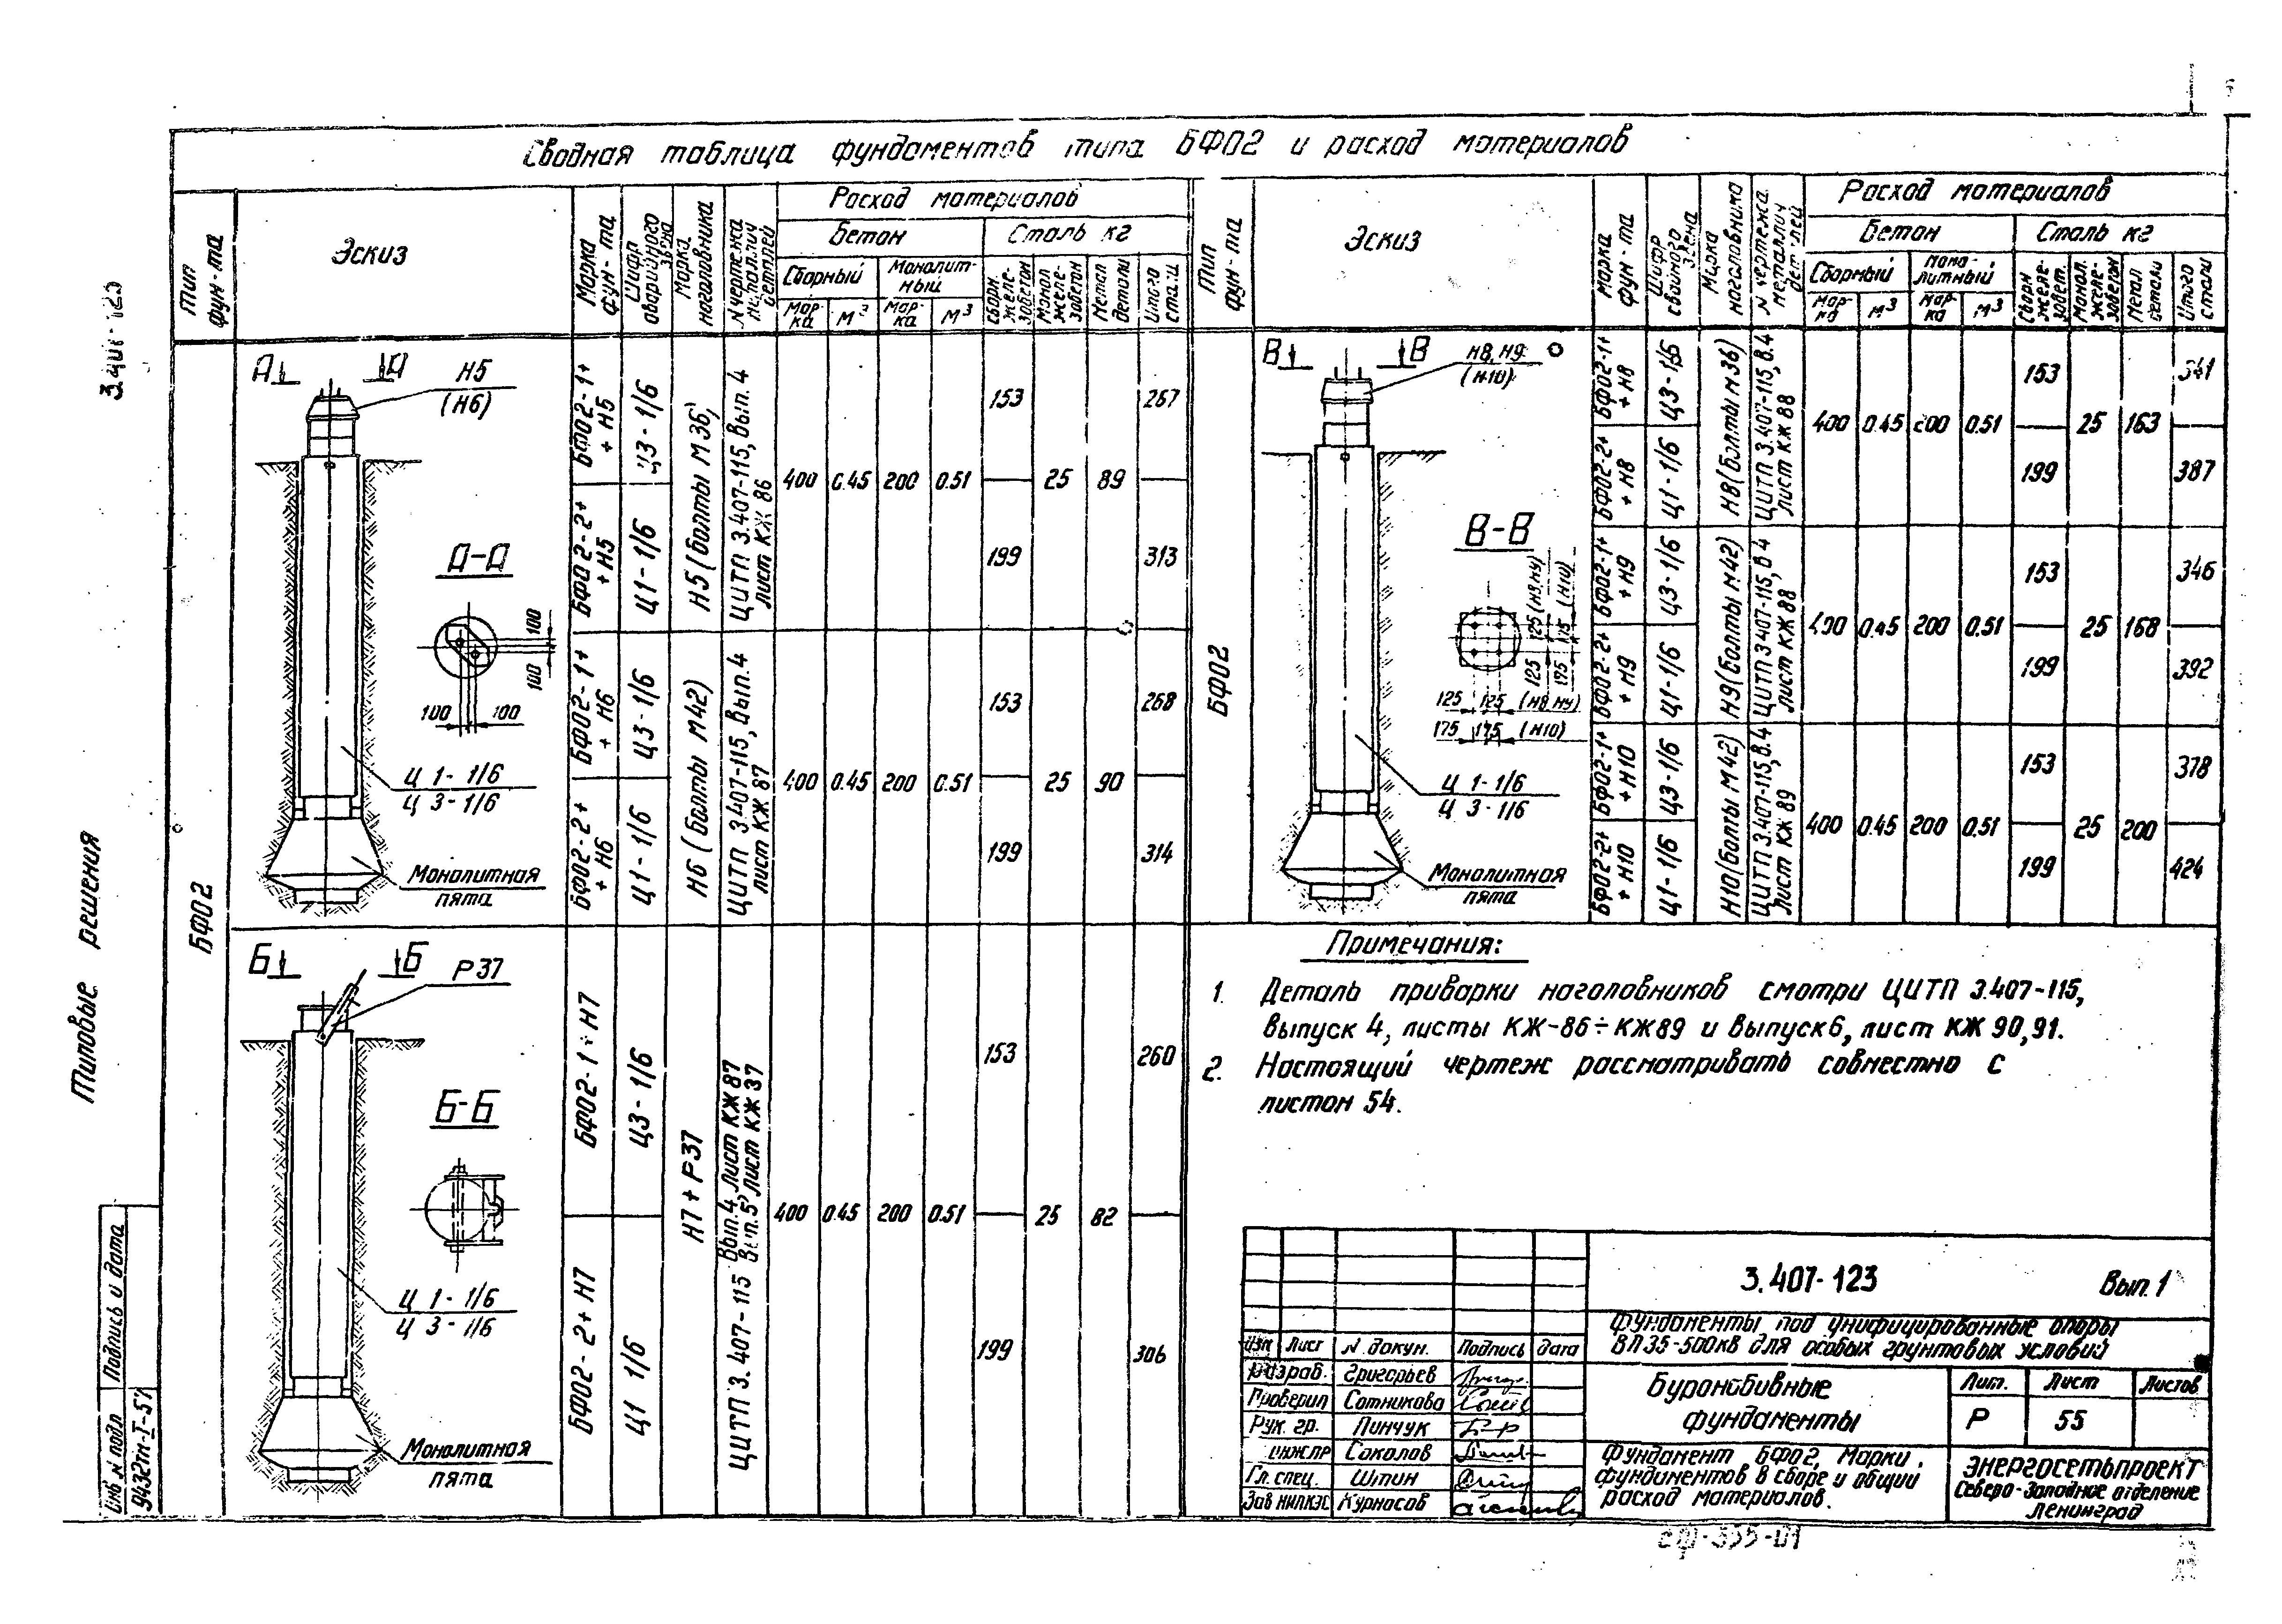 Сводная таблица фундаментов типа БФ02 и расход материалов
Тип фун-та
Эскиз
Марка фун-та
Шифр сварийного звена
Марка наголовника
N чертежа металлич деталей
Расход материалов
Бетон
Сталь кг
Сборный
Монолитный
Марка
м³
Марка
м³
Сборн. железобетон
Монол железобетон
Метал детали
Итого стали
БФ02
А А
Н5
(Н6)
А-А
100
100
100 100
Ц 1-1/6
Ц 3-1/6
Монолитная
пята
БФ02-1+ + Н5
Ц3-1/6
БФ02-2+ + Н5
Ц1-1/6
Н5 (болты М36)
ЦИТП 3.407-115, Вып. 4
лист КЖ 86
400 0.45 200 0.51 153 199 25 89 267 313
БФ02-1+ + Н6
Ц3-1/6
БФ02-2+ + Н6
Ц1-1/6
Н6 (болты М42)
ЦИТП 3.407-115, Вып. 4
лист КЖ 87
400 0.45 200 0.51 153 199 25 90 268 314
Б Б
Р37
Б-Б
Ц 1-1/6
Ц 3-1/6
Монолитная
пята
БФ02-1+Н7
Ц3-1/6
БФ02-2+Н7
Ц1 1/6
Н7+Р37
ЦИТП 3.407-115 Вып.4, Лист КЖ 87
Вып.5, Лист КЖ 37
400 0.45 200 0.51 153 199 25 82 260 306
Тип фун-та
Эскиз
Марка фун-та
Шифр свайного звена
Марка наголовника
N чертежа металлич деталей
Расход материалов
Бетон
Сталь кг
Сборный
Монолитный
Марка
м³
Марка
м³
Сборн железобет.
Монол. железобетон
Метал детали
Итого стали
БФ02
В В
Н8, Н9
(Н10)
В-В
125 125 (Н8,Н9)
175 175 (Н10)
125 125 (Н8,Н9)
175 175 (Н10)
Ц 1-1/6
Ц 3-1/6
Монолитная
пята
БФ02-1+ + Н8
Ц3-1/6
БФ02-2+ + Н8
Ц1-1/6
Н8 (болты М36)
ЦИТП 3.407-115, В.4
лист КЖ 88
400 0.45 200 0.51 153 199 25 163 341 387
БФ02-1+ + Н9
Ц3-1/6
БФ02-2+ + Н9
Ц1-1/6
Н9 (болты М42)
ЦИТП 3.407-115, В 4
лист КЖ 88
400 0.45 200 0.51 153 199 25 168 346 392
БФ02-1+ + Н10
Ц3-1/6
БФ02-2+ + Н10
Ц1-1/6
Н10 (болты М42)
ЦИТП 3.407-115, В.4
лист КЖ 89
400 0.45 200 0.51 153 199 25 200 378 424
Примечания:
1. Деталь приварки наголовников смотри ЦИТП 3.407-115,
выпуск 4, листы КЖ-86÷КЖ89 и выпуск 6, лист КЖ 90,91.
2. Настоящий чертеж рассматривать совместно с
листом 54.
3.407-123 Вып. 1
Фундаменты под унифицированные опоры
ВЛ 35-500кВ для особых грунтовых условий
Изм Лист N. докум. Подпись дата
Разраб. Григорьев
Проверил Сотникова
Рук. гр. Пинчук
инж.пр Соколов
Гл. спец. Штин
Зав НИЛКЭС Курносов
Буронабивные
фундаменты
Лит. Лист Листов
Р 55
Фундамент БФ02. Марки
фундаментов в сборе и общий
расход материалов.
ЭНЕРГОСЕТЬПРОЕКТ
Северо-Западное отделение
Ленинград
Типовые решения
3.407-123
Подпись и дата
Инв N подл
9432тм-I-57